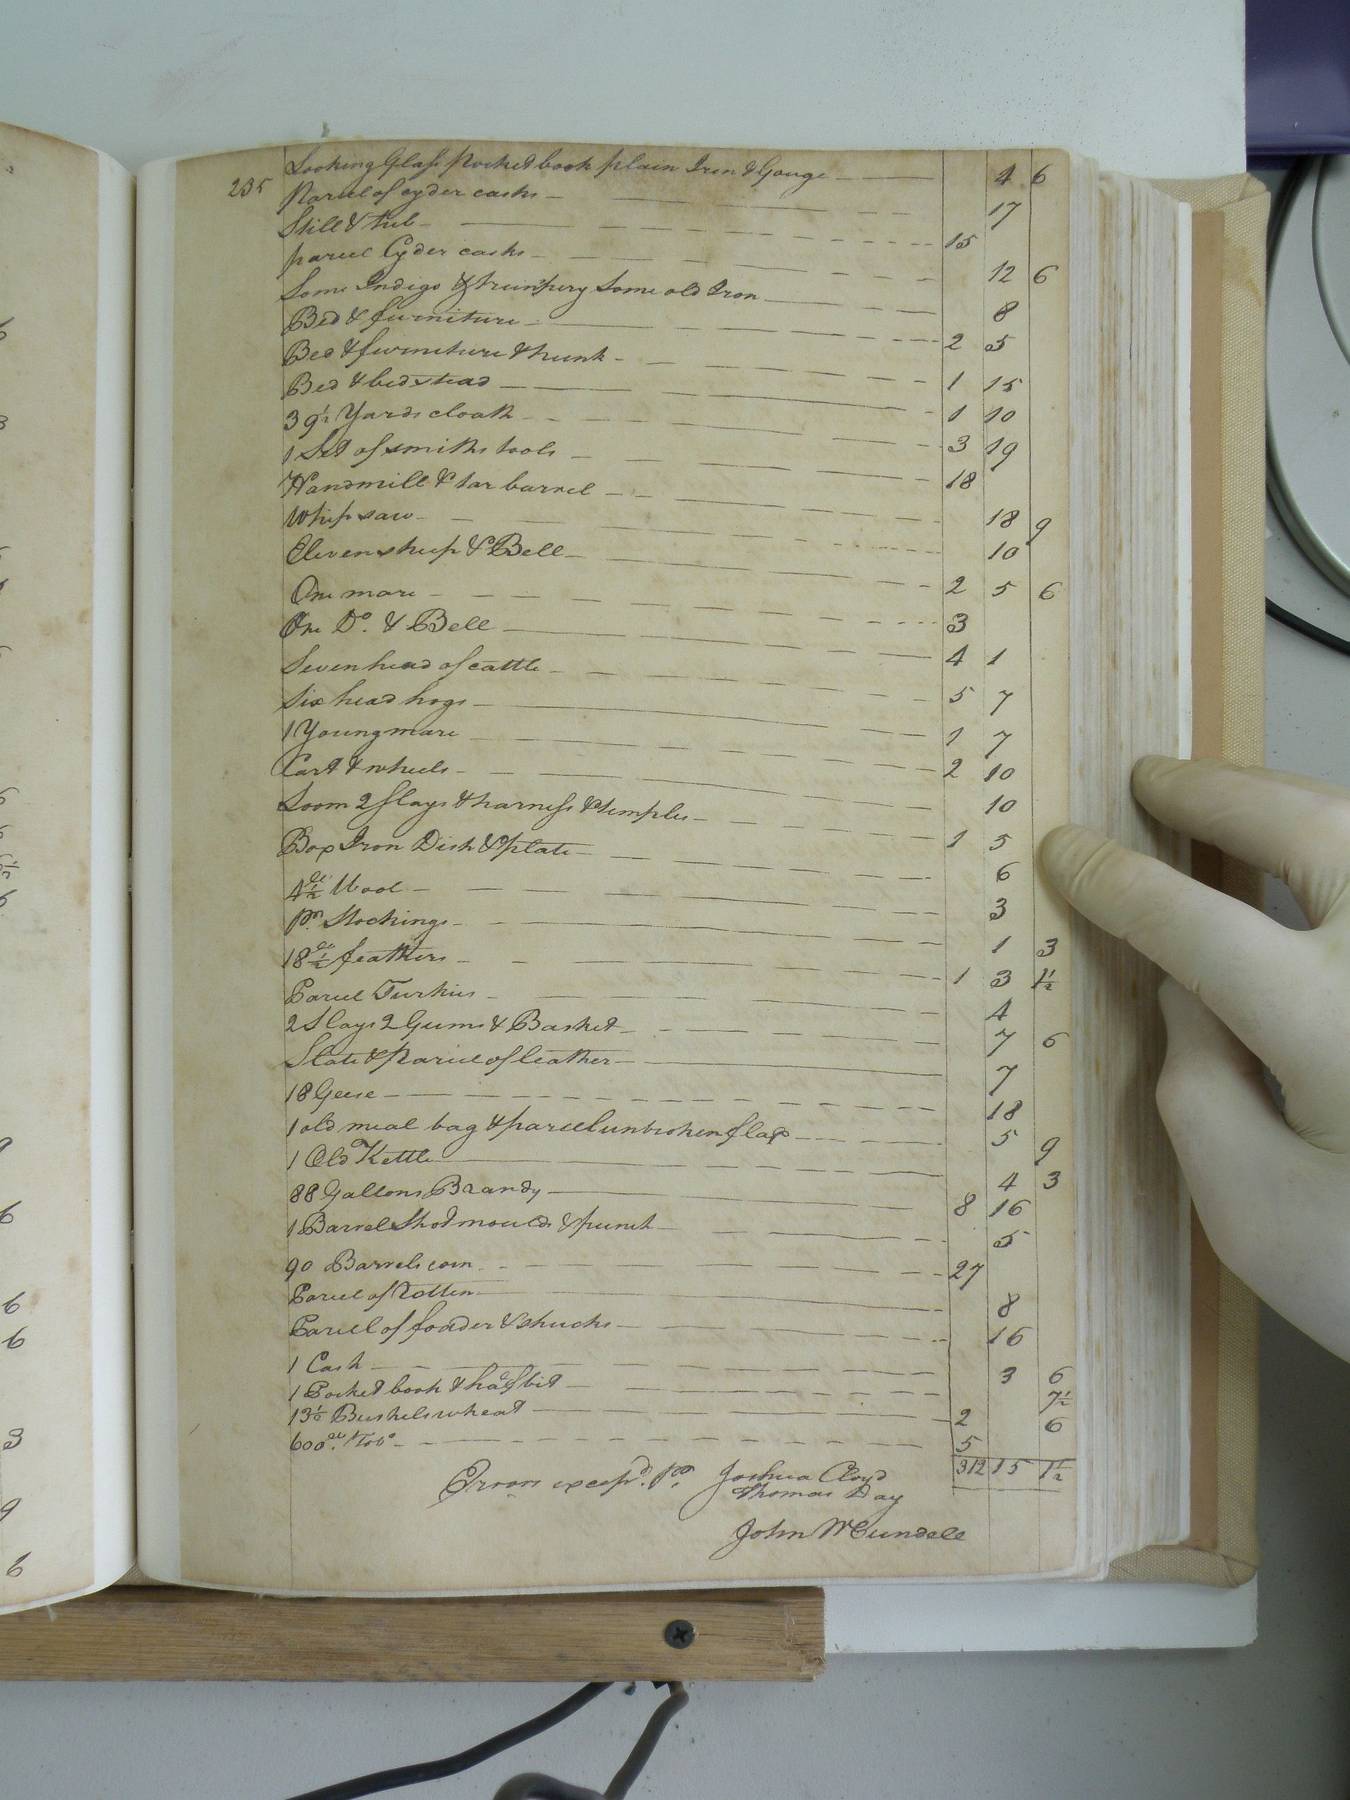 235
Looking Glass Pocket book plain Iron & Gouge 4 6
Parcel of cyder casks 17
Still & tub 15
parcel Cyder casks 12 6
Some Indigo & trumpery Some old Iron 8
Bed & furniture 2 5
Bed & furniture & trunk 1 15
Bed & bedstead 1 10
39½ Yards cloath 3 19
1 Set of smiths tools 18
Handmill & tar barrel 18 9
Whip saw 10
Eleven sheep & Bell 2 5 6
One mare 3
One Do. & Bell 4 1
Seven head of cattle 5 7
Six head hogs 1 7
1 Young mare 2 10
Cart & wheels 10
Loom 2 Slays & harness & temples 1 5
Box Iron Dish & plate 6
4½ Wool 3
Pr. Stockings 1 3
18½ feathers 1 3 1½
Parcel Turkies 4
2 Slays 2 Gums & Basket 7 6
Slate & Parcel of leather 7
18 Geese 18
1 old meal bag & parcel unbroken flax 5 9
1 Old Kettle 4 3
88 Gallons Brandy 8 16
1 Barrel Shot moulds & punch 5
90 Barrels corn 27
Parcel of Cotton 8
Parcel of fodder & shucks 16
1 Cask 3 6
1 Pocket book & half bit 7½
13½ Bushels wheat 2 6
600 Tobo 5
312 15 1½
Errors excepd. Pr. Joshua Cloyd
Thomas Day
John McCundell
6
3
9
6
6
6
3
9
6